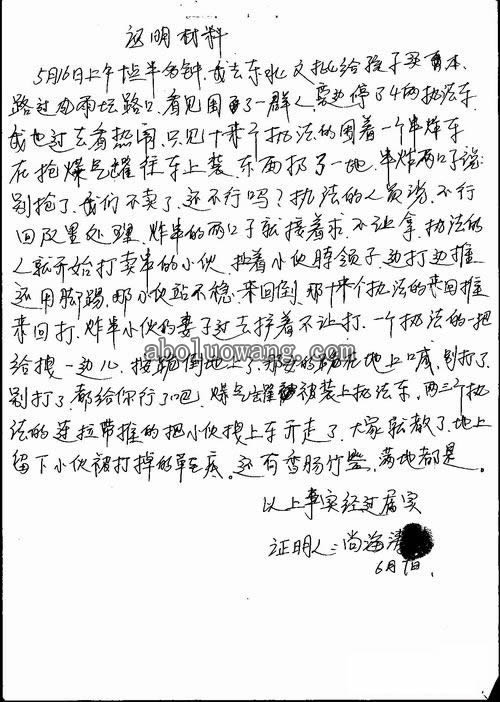 证明材料
5月16日上午十点半分钟,我去东水文批给孩子买本,
路过风雨坛路口,看见围了一群人旁边停了4两执法车,
我也过去看热闹,只见十来个执法的围着一个串炸车
在抢煤气罐往车上装,东西扔了一地,串炸两口子说:
别抢了,我们不卖了,还不行吗?执法的人员说,不行
回队里处理,炸串的两口子就接着求,不让拿,执法的
人就开始打卖串的小伙,抓着小伙脖领子,边打边推
还用脚踢,那小伙站不稳,来回倒,那十来个执法的来回推
来回打,炸串小伙的妻子过去拦着不让打,一个执法的一把
给拽一边儿,按跪倒地上了,那女的跪在地上口喊,别打了,
别打了,都给你行了吧,煤气罐被装上执法车,两三个执
法的连拉带推的把小伙拽上车开走了,大家就散了,地上
留下小伙被打掉的鞋底。还有香肠竹签,满地都是。
以上事实经过属实
证明人:尚海涛
6月7日,
aboluowang.com